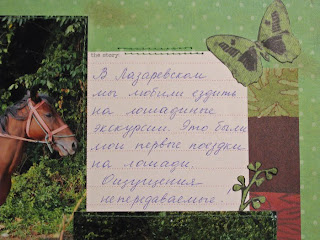 the story
В Лазаревском
мы любили ездить
на лошадиные
экскурсии. Это были
мои первые поездки
на лошади.
Ощущения
непередаваемые.